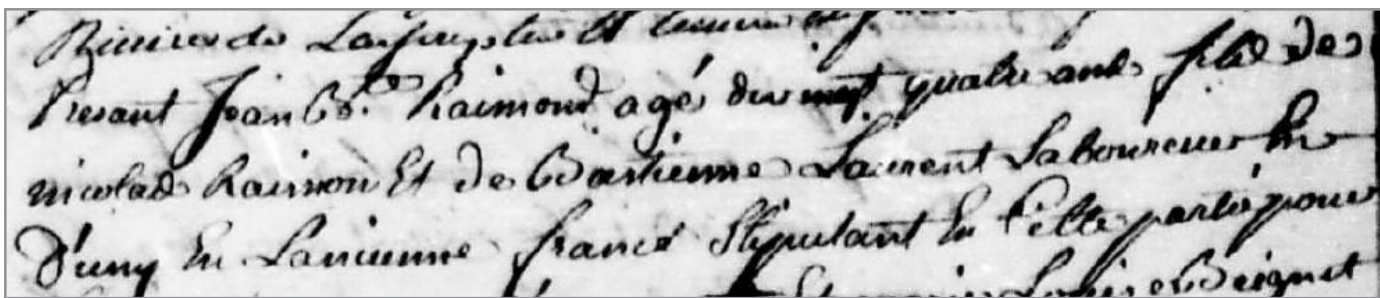 Riviere de
presant Jean Bte. Raimond agé de vingt quatre ans fils de
nicolas Raimon Et de Bastienne Laurent Laboureur En
D'uny En Lancienne france Stipulant En Cette partie pour
Louise Beignet